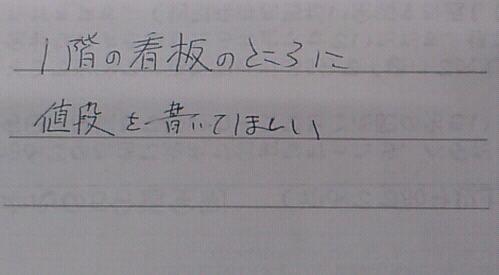 1階の看板のところに
値段を書いてほしい